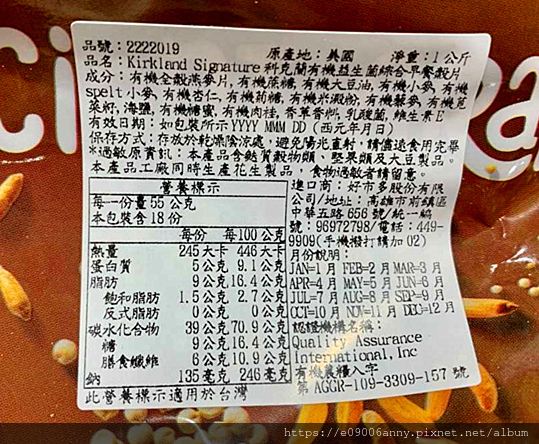 品號：2222019 原產地：美國 淨重：1公斤
品名：Kirkland Signature 科克蘭有機益生菌綜合早餐穀片
成分：有機全穀燕麥片,有機蔗糖,有機大豆油,有機小麥,有機
spelt小麥,有機杏仁,有機葡糖,有機米澱粉,有機藜麥,有機莧
菜籽,海鹽,有機糖蜜,有機肉桂,香草香料,乳酸菌,維生素E
有效日期：如包裝所示YYYY MMM DD (西元年月日)
保存方式：存放於乾燥陰涼處,避免陽光直射,請儘速食用完畢
*過敏原資訊：本產品含麩質穀物類、堅果類及大豆製品。
本產品工廠同時生產花生製品，食物過敏者請留意。
營養標示
每一份量55公克
本包裝含18份
每份 每100公克
熱量 245大卡 446大卡
蛋白質 5公克 9.1公克
脂肪 9公克 16.4公克
飽和脂肪 1.5公克 2.7公克
反式脂肪 0公克 0公克
碳水化合物 39公克 70.9公克
糖 9公克 16.4公克
膳食纖維 6公克 10.9公克
鈉 135毫克 246毫克
此營養標示適用於台灣
進口商：好市多股份有限
公司/地址：高雄市前鎮區
中華五路656號/統一編
號：96972798/電話：449-
9909(手機撥打請加02)
月份說明：
JAN=1月 FEB=2月 MAR=3月
APR=4月 MAY=5月 JUN=6月
JUL=7月 AUG=8月 SEP=9月
OCT=10月 NOV=11月 DEC=12月
認證機構名稱：
Quality Assurance
International, Inc
有機農糧入字
第AGGR-109-3309-157號
https://e09006anny.pixnet.net/album